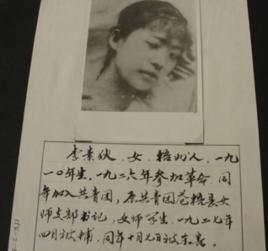 李素秋、女、赣州人、一九
一〇年生、一九二六年参加革命、同
年加入共青团，原共青团赣县女
师支部书记，女师学生、一九二七年
四月被捕，同年十月九日被杀害。